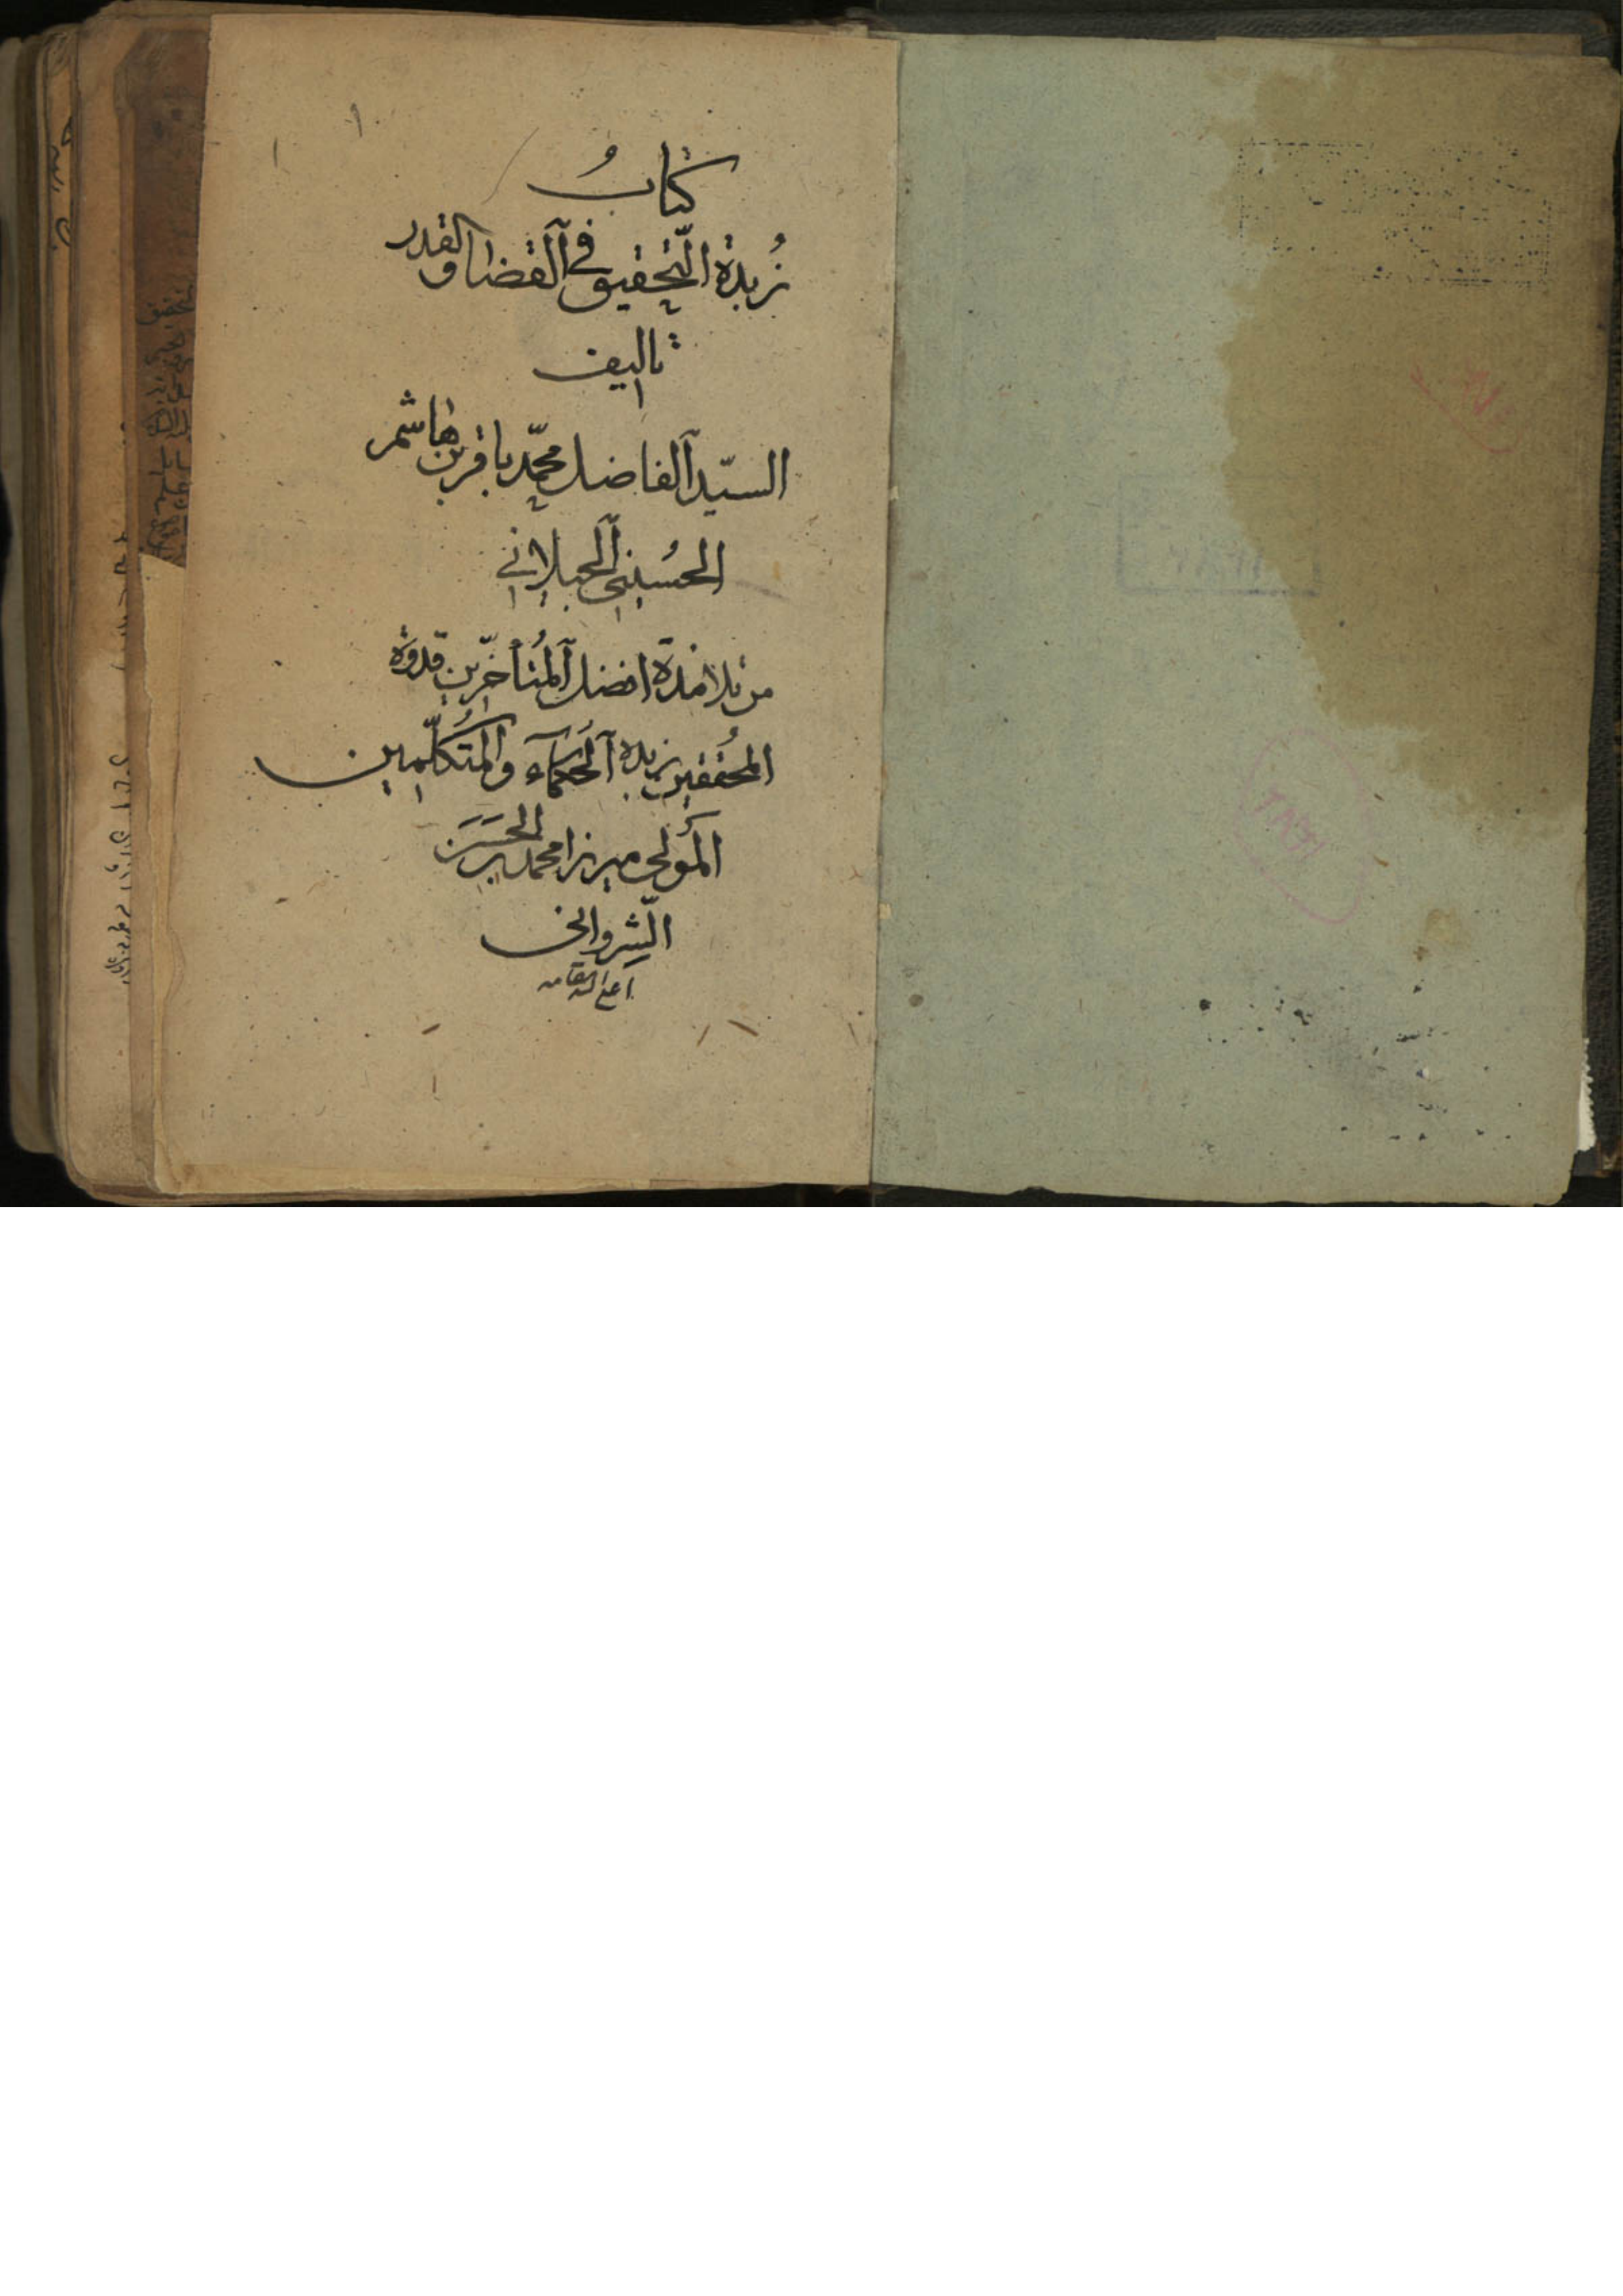 كتابُ
زُبدة التّحقيق في القضا والقدر
تاليف
السيّد الفاضل محمّد باقر بن هاشم
الحسُيني الجيلاني
من تلامذة افضل المُتأخّرين قدوة
المحُققين زبدة الحُكمآء والمُتكلّمين
المَولى ميرزا محمد بن الحَسَن
الشّرواني
اعلى الله مقامه